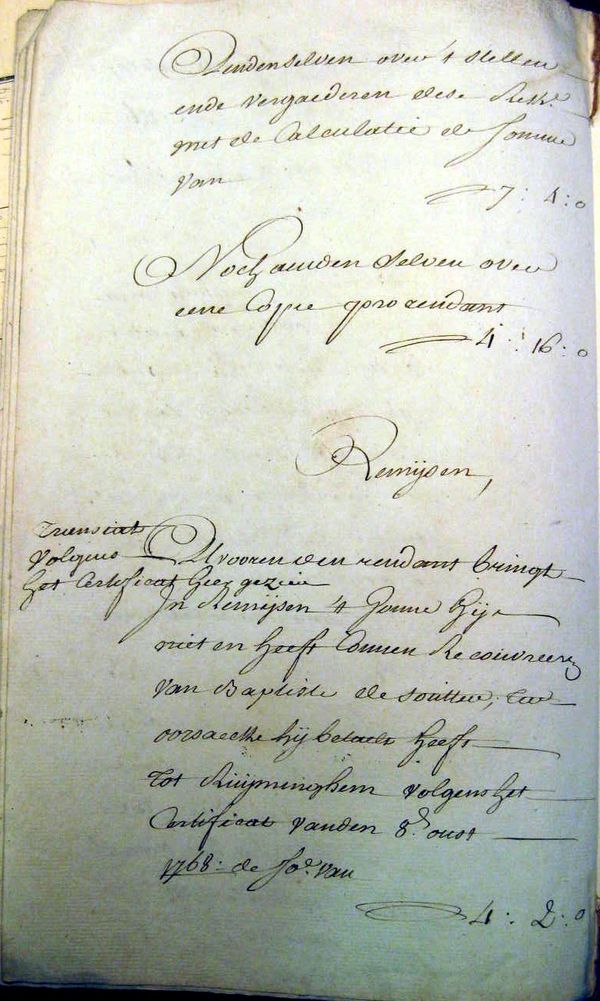 Aendenselven over 't stellen
ende vergaederen dese Rekk:
met de Calculatie de Somme
van
7 : 4 : 0
Noch aenden selven over
eene Copie pro rendant
4 : 16 : 0
Remijsen,
Transeat
volgens
het Certificat hier gezien
Alvooren den rendant bringt
In Remijsen 't gonne hij
niet en heeft Connen Recouvreren
van Baptiste de
oorsaecke hij betaelt heeft
tot Ruijminghem volgens het
Certificat vanden 8.en oust
1768 - de So.e van
4 : 2 : 0